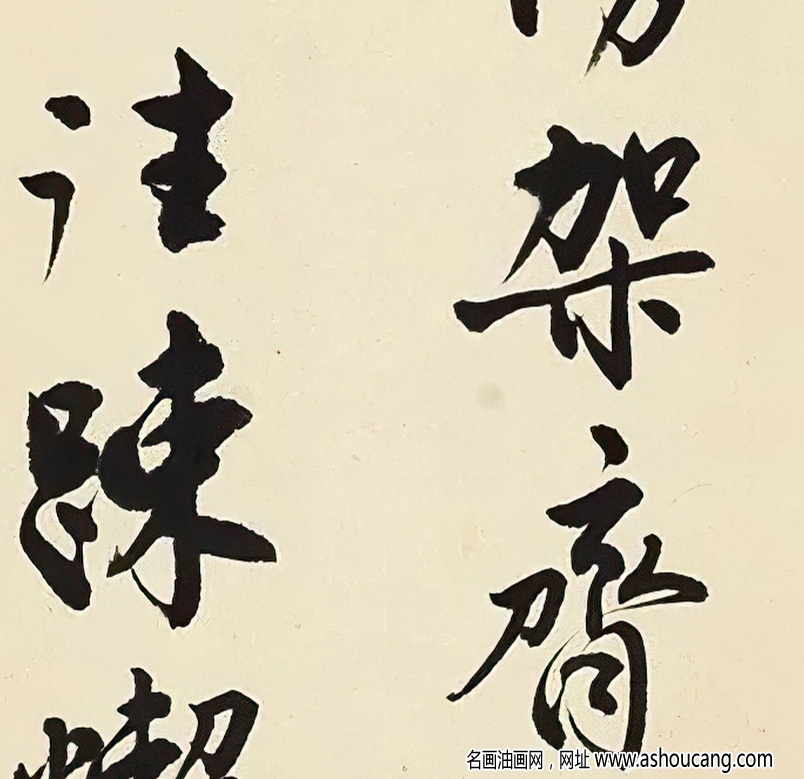 架齊
註踈
名画油画网，网址 www.ashoucang.com